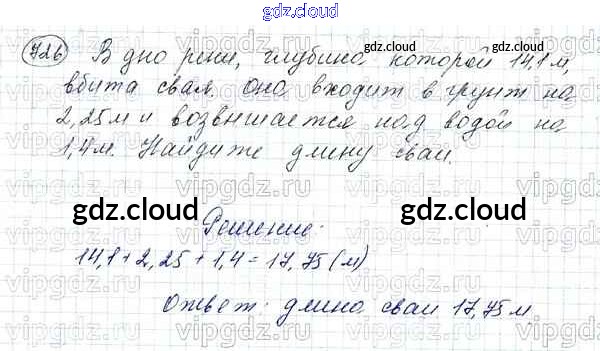 gdz.cloud
726 В дно реки, глубина которой 14,1 м,
gdz.cloud gdz.cloud
вбита свая. она входит в грунт на
2,25 м и возвышается над водой на
1,4 м. Найдите длину сваи.
gdz.cloud gdz.cloud
Решение:
14,1 + 2,25 + 1,4 = 17,75 (м)
Ответ: длина сваи 17,75 м